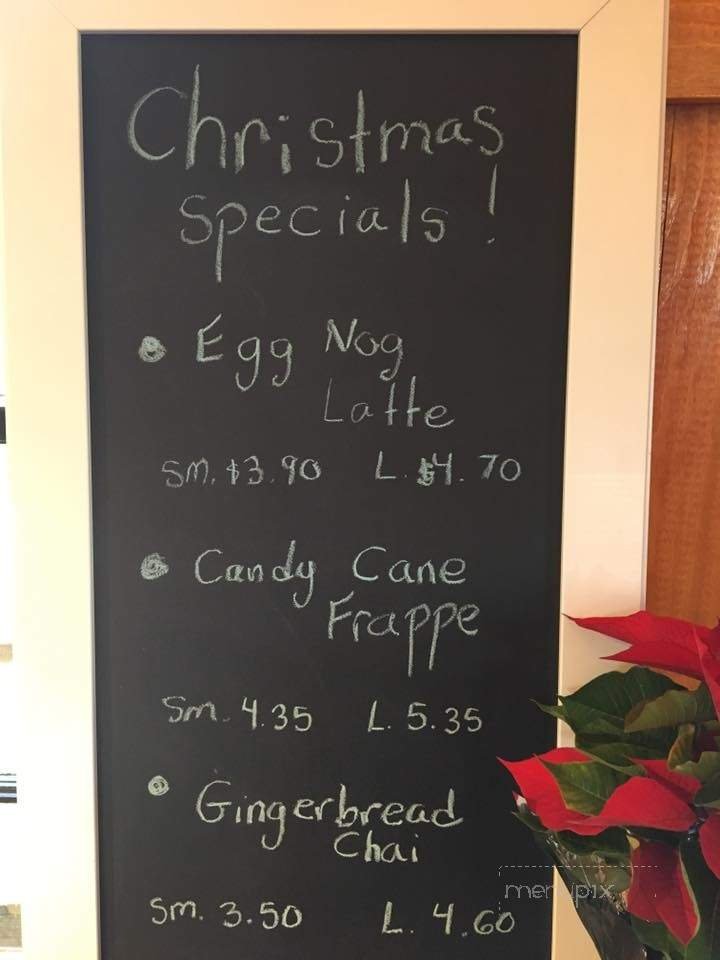 Christmas
Specials!
Egg Nog
Latte
Sm. $3.90 L. $4.70
Candy Cane
Frappe
Sm. 4.35 L. 5.35
Gingerbread
Chai
Sm. 3.50 L. 4.60
menupix